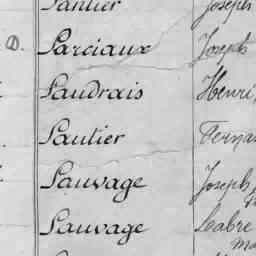 Santier Joseph
D. Sarciaux Joseph
Saudrais Henri,
Sautier Ferna
Sauvage Joseph
Sauvage Labre